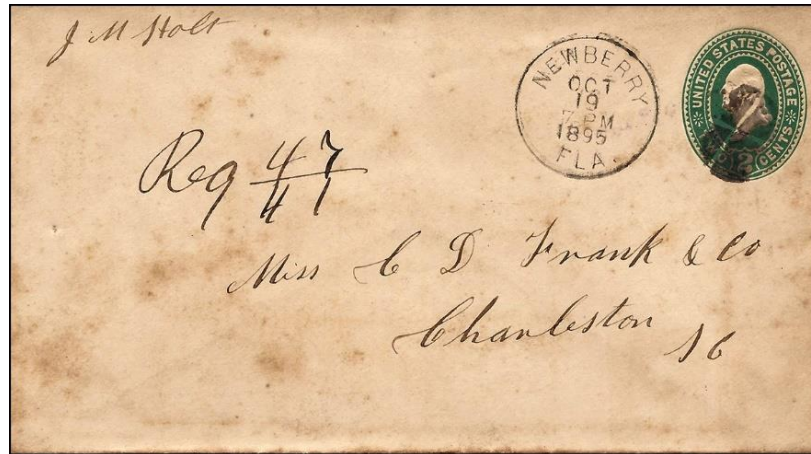 J M Holt
NEWBERRY
OCT
19
7 PM
1895
FLA.
UNITED STATES POSTAGE
2 CENTS
Reg 47
41
Miss C D Frank & Co
Charleston
S C